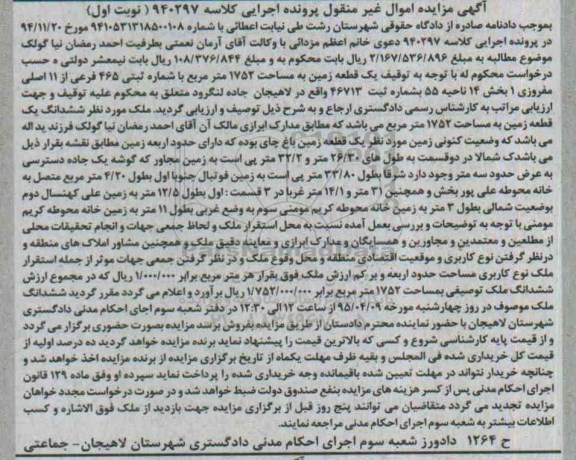 آگهی مزایده اموال غیر منقول پرونده اجرایی کلاسه ۹۴۰۲۹۷ ( نوبت اول)
بموجب دادنامه صادره از دادگاه حقوقی شهرستان رشت طی نیابت اعطائی با شماره ۹۴۱۰۵۳۱۳۱۸۵۰۰۱۰۸ مورخ ۹۴/۱۱/۲۰
در پرونده اجرایی کلاسه ۹۴۰۲۹۷ دعوی خانم اعظم مژدائی با وکالت آقای آرمان نعمتی بطرفیت احمد رمضان نیا گولک
موضوع مطالبه به مبلغ ۲/۱۶۷/۵۳۶/۸۹۶ ریال بابت محکوم به و مبلغ ۱۰۸/۳۷۶/۸۴۴ ریال بابت نیمعشر دولتی ه حسب
درخواست محکوم له با توجه به توقیف یک قطعه زمین به مساحت ۱۷۵۲ متر مربع با شماره ثبتی ۴۶۵ فرعی از ۱۱ اصلی
مفروزی ۱ بخش ۱۴ ناحیه ۵۵ بشماره ثبت ۴۶۷۱۳ واقع در لاهیجان جاده لنگرود متعلق به محکوم علیه توقیف و جهت
ارزیابی مراتب به کارشناس رسمی دادگستری ارجاع و به شرح ذیل توصیف و ارزیابی گردید. ملک مورد نظر ششدانگ یک
قطعه زمین به مساحت ۱۷۵۲ متر مربع می باشد که مطابق مدارک ابرازی مالک آن آقای احمد رمضان نیا گولک فرزند ید اله
می باشد که وضعیت کنونی زمین مورد نظر یک قطعه زمین باغ چای بوده که دارای حدود اربعه زمین مطابق نقشه بقرار ذیل
می باشدک شمالا در دوقسمت به طول های ۲۶/۳۰ متر و ۳۲/۲ متر پی است به زمین مجاور که گوشه یک جاده دسترسی
به عرض حدود سه متر وجود دارد شرقا بطول ۳۳/۸۰ متر پی است به زمین فوتبال جنوبا اول بطول ۴/۲۰ متر مربع متصل به
خانه محوطه علی پور بخش و همچنین ۳۱ متر و ۱۴/۱ متر غربا در ۳ قسمت : اول بطول ۱۲/۵ متر به زمین علی کهنسال دوم
بوضعیت شمالی بطول ۳ متر به زمین خانه محوطه کریم مومنی سوم به وضع غربی بطول ۱۱ متر به زمین خانه محوطه کریم
مومنی با توجه به توضیحات و بررسی بعمل آمده نسبت به محل استقرار ملک و لحاظ جمعی جهات و انجام تحقیقات محلی
از مطلعین و معتمدین و مجاورین و همسایگان و مدارک ابرازی و معاینه دقیق ملک و همچنین مشاور املاک های منطقه و
در نظر گرفتن نوع کاربری و موقعیت اقتصادی منطقه و محل وقوع ملک و در نظر گرفتن جمعی جهات موثر از جمله استقرار
ملک نوع کاربری مساحت حدود اربعه و بر کم ارزش ملک فوق بقرار هر متر مربع برابر ۱/۰۰۰/۰۰۰ ریال که در مجموع ارزش
ششدانگ ملک توصیفی بمساحت ۱۷۵۲ متر مربع برابر ۱/۷۵۲/۰۰۰/۰۰۰ ریال برآورد و اعلام می گردد مقرر گردید ششدانگ
ملک موصوف در روز چهارشنبه مورخه ۹۵/۰۴/۰۹ از ساعت ۱۲ الی ۱۲:۳۰ در دفتر شعبه سوم اجای احکام مدنی دادگستری
شهرستان لاهیجان با حضور نماینده محترم دادستان از طریق مزایده بفروش برسد مزایده بصورت حضوری برگزار می گردد
و از قیمت پایه کارشناسی شروع و کسی که بالاترین قیمت را پیشنهاد نماید برنده مزایده خواهد گردید ده درصد اولیه از
قیمت کل خریداری شده فی المجلس و بقیه ظرف مهلت یکماه از تاریخ برگزاری مزایده از برنده مزایده اخذ خواهد شد و
چنانچه خریدار نتواند در مهلت تعیین شده باقیمانده وجه خریداری شده را پرداخت نماید سپرده او وفق ماده ۱۲۹ قانون
اجرای احکام مدنی پس از کسر هزینه های مزایده بنفع صندوق دولت ضبط خواهد شد و در صورت درخواست مجدد خواهان
مزایده تجدید می گردد متقاضیان می توانند پنج روز قبل از برگزاری مزایده جهت بازدید از ملک فوق الاشاره و کسب
اطلاعات بیشتر به شعبه سوم اجرای احکام مدنی مراجعه نمایند.
ح ۱۲۶۴ دادورز شعبه سوم اجرای احکام مدنی دادگستری شهرستان لاهیجان- جماعتی